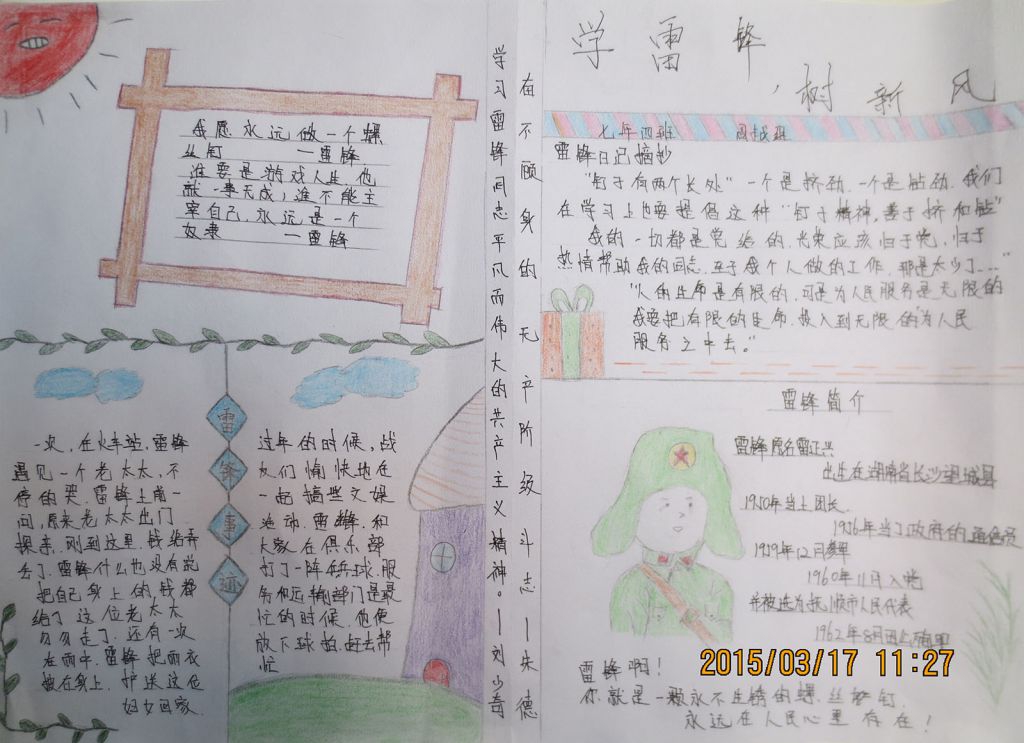 学雷锋
，树新风
七年四班
雷锋日记摘抄
"钉子有两个长处"一个是挤劲.一个是钻劲.我们
在学习上也要提倡这种"钉子精神,善于挤和钻"
我的一切都是党给的.光荣应该归于党,归于
热情帮助我的同志.至于我个人做的工作.那是太少了...."
"人的生命是有限的,可是为人民服务是无限的
我要把有限的生命.投入到无限的为人民
服务之中去。"
我愿永远做一个螺
丝钉 —雷锋
谁要是游戏人生.他
就一事无成,谁不能主
宰自己,永远是一个
奴隶 —雷锋
学习雷锋同志平凡而伟大的共产主义精神。——刘少奇
奋不顾身的无产阶级斗志——朱德
雷锋事迹
一次,在火车站,雷锋
遇见一个老太太,不
停的哭.雷锋上前一
问,原来老太太出门
探亲.刚到这里.钱给弄
丢了.雷锋什么也没有说
把自己身上的钱都
给了这位老太太
匆匆走了.还有一次
在雨中.雷锋把雨衣
披在身上.护送这位
妇女回家.
过年的时候,战
友们愉快地在
一起搞些文娱
活动.雷锋.和
大家在俱乐部
打了一阵乒球.服
务和运输部门是最
忙的时候.他便
放下球拍.赶去帮
忙
雷锋简介
雷锋原名雷正兴
出生在湖南省长沙望城县
1950年当上团长.
1956年当了政府的通信员
1959年12月参军
1960年11月入党
并被选为抚顺市人民代表
1962年8月
雷锋啊!
你就是一颗永不生锈的螺丝钉
永远在人民心里存在!
2015/03/17 11:27